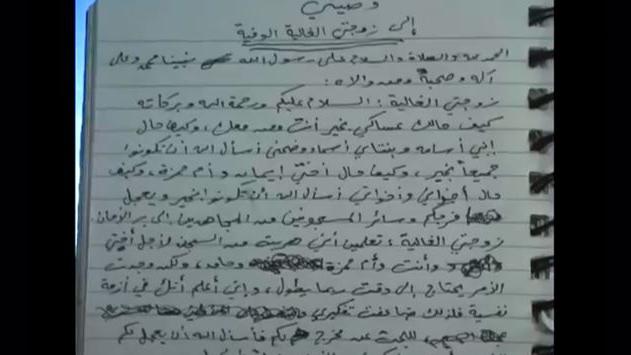 وصيتي
إلى زوجتي الغالية الوفية
الحمد لله والصلاة والسلام على رسول الله نبينا محمد وعلى
آله وصحبه ومن والاه:
زوجتي الغالية: السلام عليكم ورحمة الله وبركاته
كيف حالك عساكي بخير أنت ومن معك، وكيف حال
إبني أسامه وبناتي أسماء وضحى أسأل الله أن تكونوا
جميعاً بخير، وكيف حال أختي إيمان وأم حمزة، وكيف
حال أخواتي وأخواني أسأل الله أن تكونوا بخير ويعجل
فرجكم وسائر المسجونين من المجاهدين إلى بر الأمان.
زوجتي الغالية، تعلمين أنني هربت من السجن لأجل أختي
وأنت وأم حمزة وحامد، ولكن وجدت
الأمر يحتاج إلى وقت ربما يطول، وإني أعلم أنك في أزمة
نفسية فلذلك ضاعفت تفكيري
للبحث عن مخرج لكم فأسأل الله أن يعجل لكم